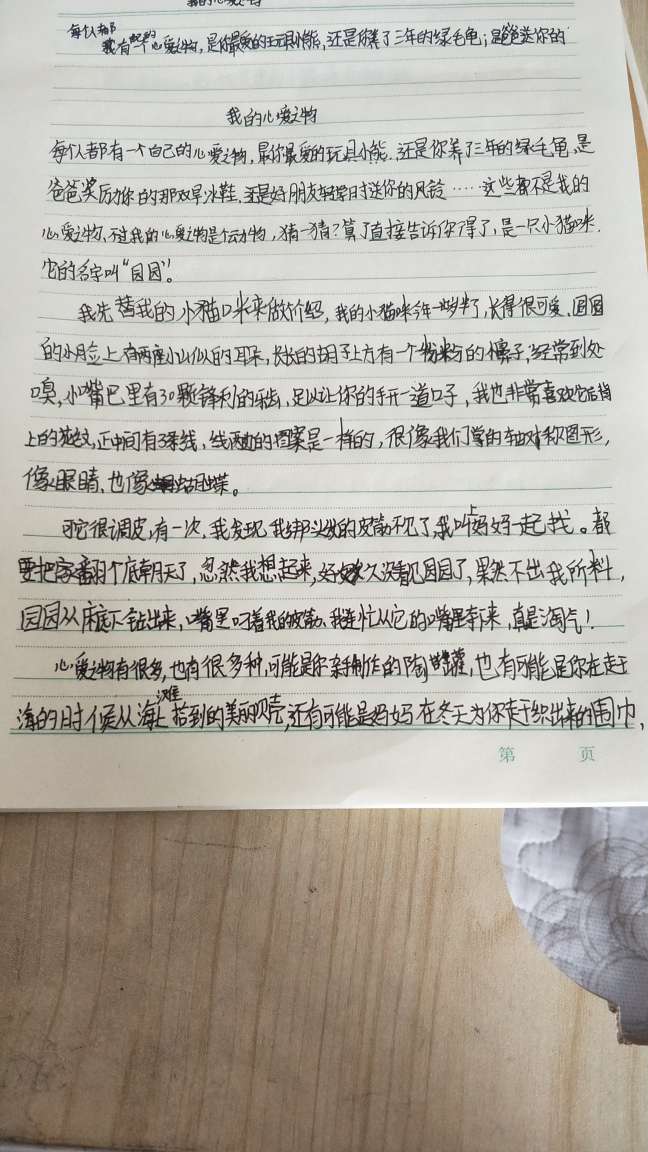 我的心爱之物
每个人都
我有自己的一个心爱之物，是你最爱的玩具小熊，还是你养了三年的绿毛龟；是爸爸送你的
我的心爱之物
每个人都有一个自己的心爱之物，是你最爱的玩具小熊，还是你养了三年的绿毛龟，是
爸爸奖厉你的那双旱冰鞋，还是好朋友轻常日送你的风铃……这些都不是我的
心爱之物，不过我的心爱之物是个动物，猜一猜？算了直接告诉你得了，是一只小猫咪.
它的名字叫“园园”。
我先替我的小猫咪来做个介绍，我的小猫咪今年一岁半了，长得很可爱，圆圆
的小脸上有两座小山似的耳朵，长长的胡子上方有一个粉粉的鼻子，经常到处
嗅，小嘴巴里有30颗锋利的牙齿，足以让你的手开一道口子，我也非常喜欢它后背
上的花纹，正中间有3条线，线两边的图案是一样的，很像我们学的轴对称图形，
像眼睛、也像蝴蝶。
可它很调皮，有一次，我发现我绑头发的皮筋不见了，我叫上妈妈一起找。都
要把家翻个底朝天了，忽然我想起来，好久没看见园园了，果然不出我所料，
园园从床底下钻出来，嘴里叼着我的皮筋、我连忙从它的嘴里夺来，真是淘气！
心爱之物有很多，也有很多种，可能是你亲手制作的陶罐，也有可能是你在赶
海的时候从海滩上拾到的美丽贝壳，还有可能是妈妈在冬天为你手织出来的围巾，
第 页